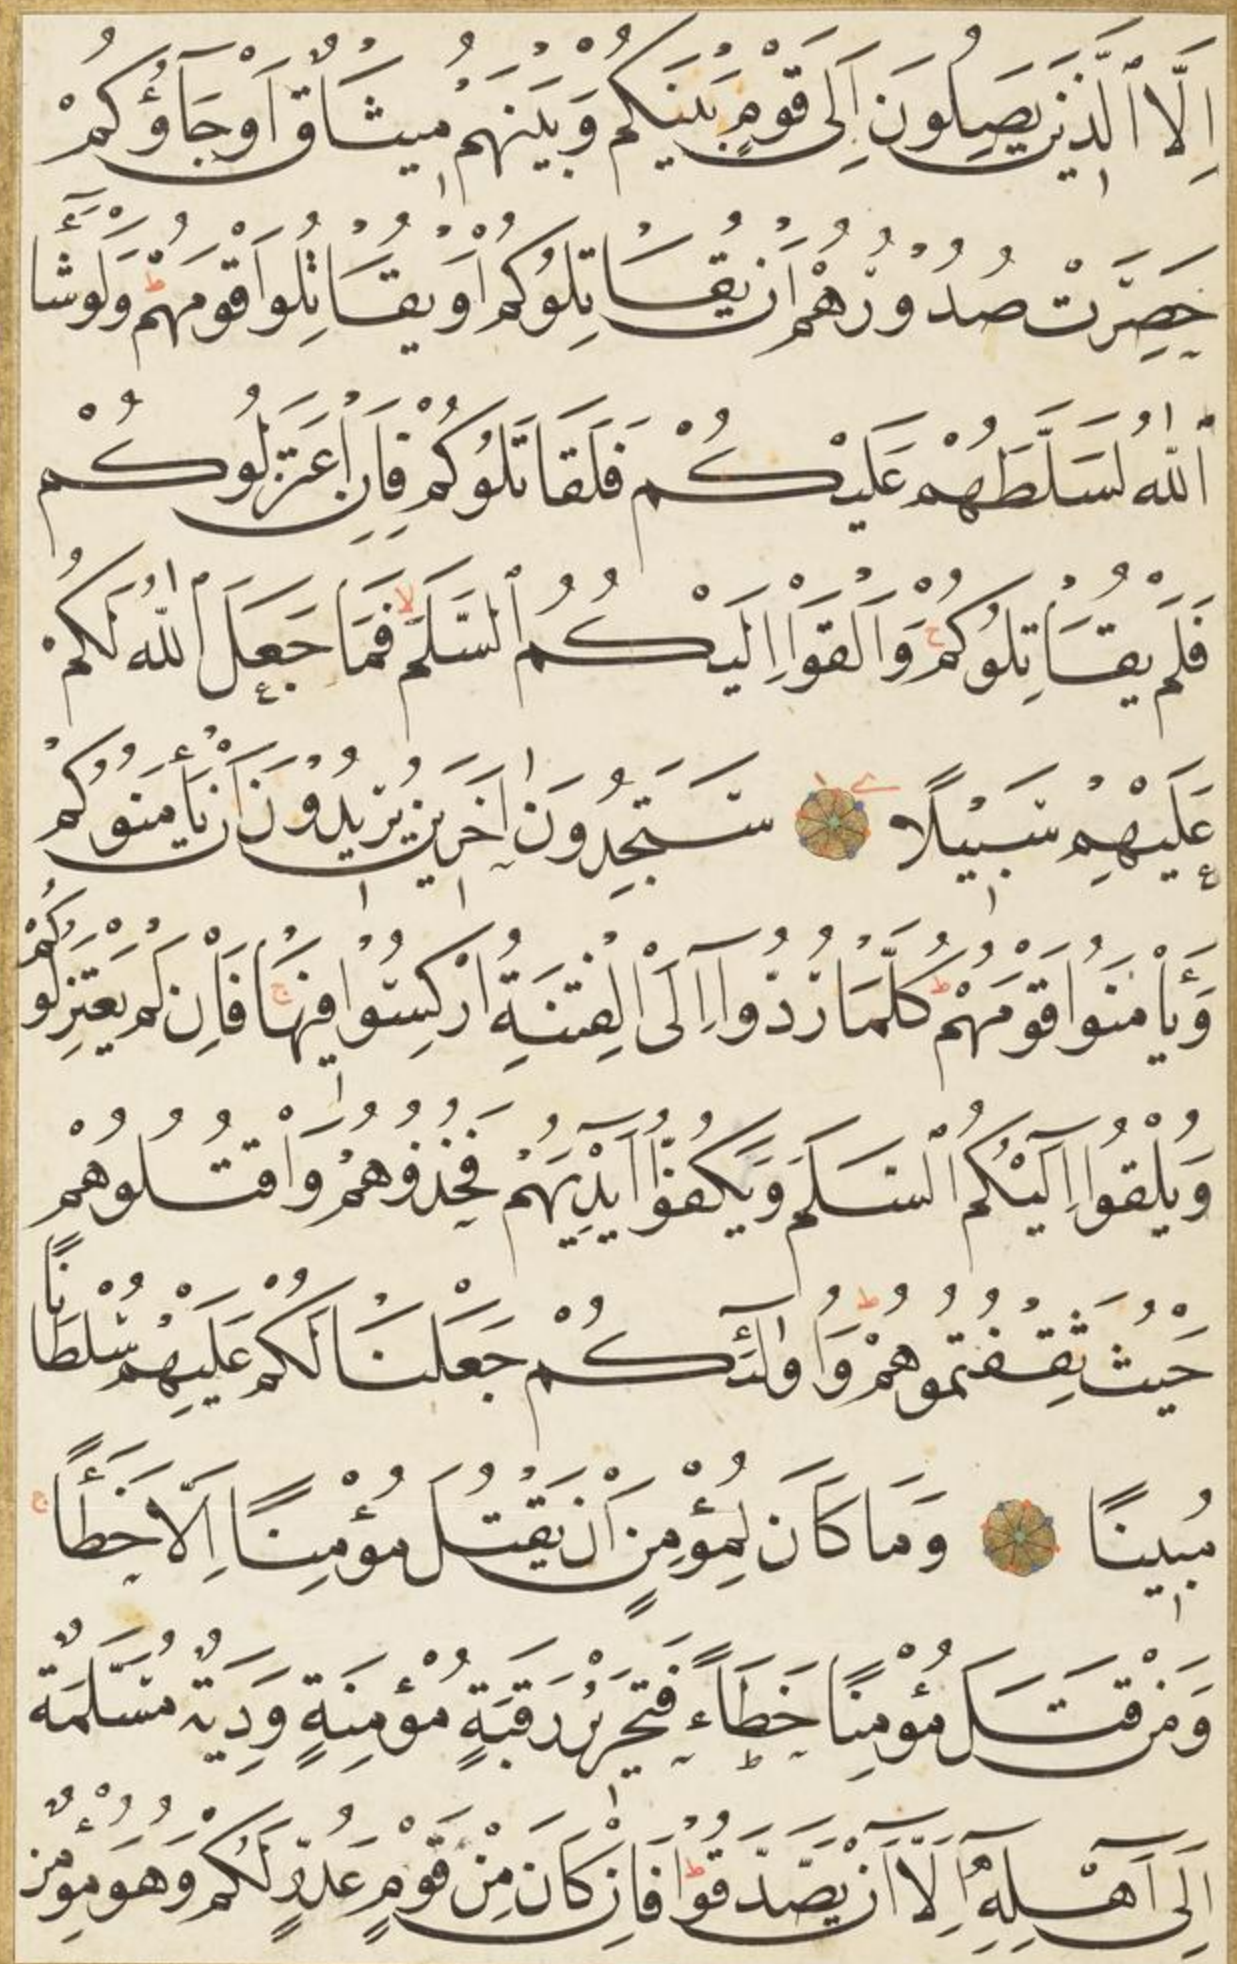 اِلَّا الَّذينَ يَصِلُونَ اِلٰى قَوْمٍ بَيْنَكُمْ وَبَيْنَهُمْ ميثَاقٌ اَوْ جَآؤُكُمْ
حَصِرَتْ صُدُورُهُمْ اَنْ يُقَاتِلُوكُمْ اَوْ يُقَاتِلُوا قَوْمَهُمْ ط وَلَوْ شَآءَ
اللّٰهُ لَسَلَّطَهُمْ عَلَيْكُمْ فَلَقَاتَلُوكُمْ فَاِنِ اعْتَزَلُوكُمْ
فَلَمْ يُقَاتِلُوكُمْ وَاَلْقَوْا اِلَيْكُمُ السَّلَمَ لا فَمَا جَعَلَ اللّٰهُ لَكُمْ
عَلَيْهِمْ سَبيلًا سَتَجِدُونَ اٰخَرينَ يُريدُونَ اَنْ يَأْمَنُوكُمْ
وَيَأْمَنُوا قَوْمَهُمْ ط كُلَّمَا رُدُّوا اِلَى الْفِتْنَةِ اُرْكِسُوا فيهَا ج فَاِنْ لَمْ يَعْتَزِلُوكُمْ
وَيُلْقُوا اِلَيْكُمُ السَّلَمَ وَيَكُفُّوا اَيْدِيَهُمْ فَخُذُوهُمْ وَاقْتُلُوهُمْ
حَيْثُ ثَقِفْتُمُوهُمْ ط وَاُولٰٓئِكُمْ جَعَلْنَا لَكُمْ عَلَيْهِمْ سُلْطَانًا
مُبينًا وَمَا كَانَ لِمُؤْمِنٍ اَنْ يَقْتُلَ مُؤْمِنًا اِلَّا خَطَأً ج
وَمَنْ قَتَلَ مُؤْمِنًا خَطَاءً فَتَحْريرُ رَقَبَةٍ مُؤْمِنَةٍ وَدِيَةٌ مُسَلَّمَةٌ
اِلٰى اَهْلِهٖ اِلَّا اَنْ يَصَّدَّقُوا ط فَاِنْ كَانَ مِنْ قَوْمٍ عَدُوٍّ لَكُمْ وَهُوَ مُؤْمِنٌ